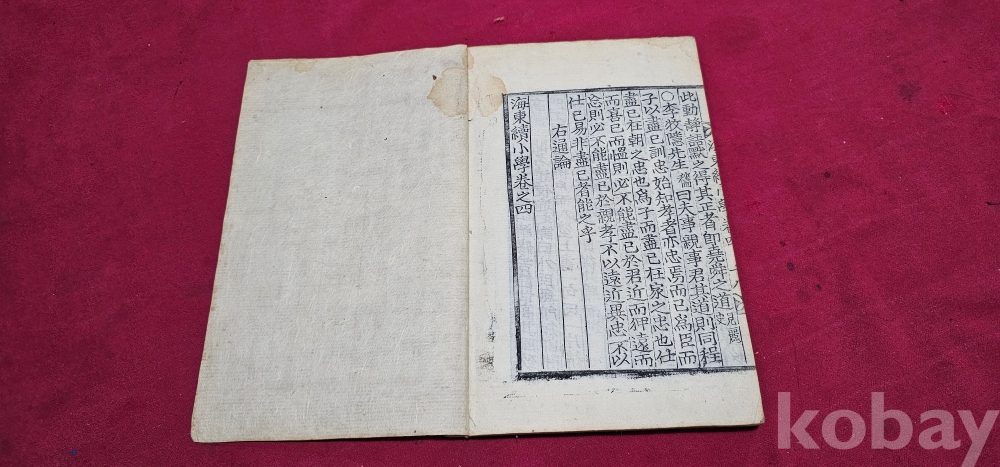 此動靜語默之得其正者卽堯舜之道
○李牧隱先生穡曰夫事親事君其道則同程
子以盡己訓忠始知孝者亦忠焉而已爲臣而
盡己在朝之忠也爲子而盡己在家之忠也仕
而喜已而慍則必不能盡己於君近而狎遠而
忩則必不能盡己於親孝不以遠近異忠不以
仕已易非盡己者能之乎
右通論
海東續小學卷之四
kobay